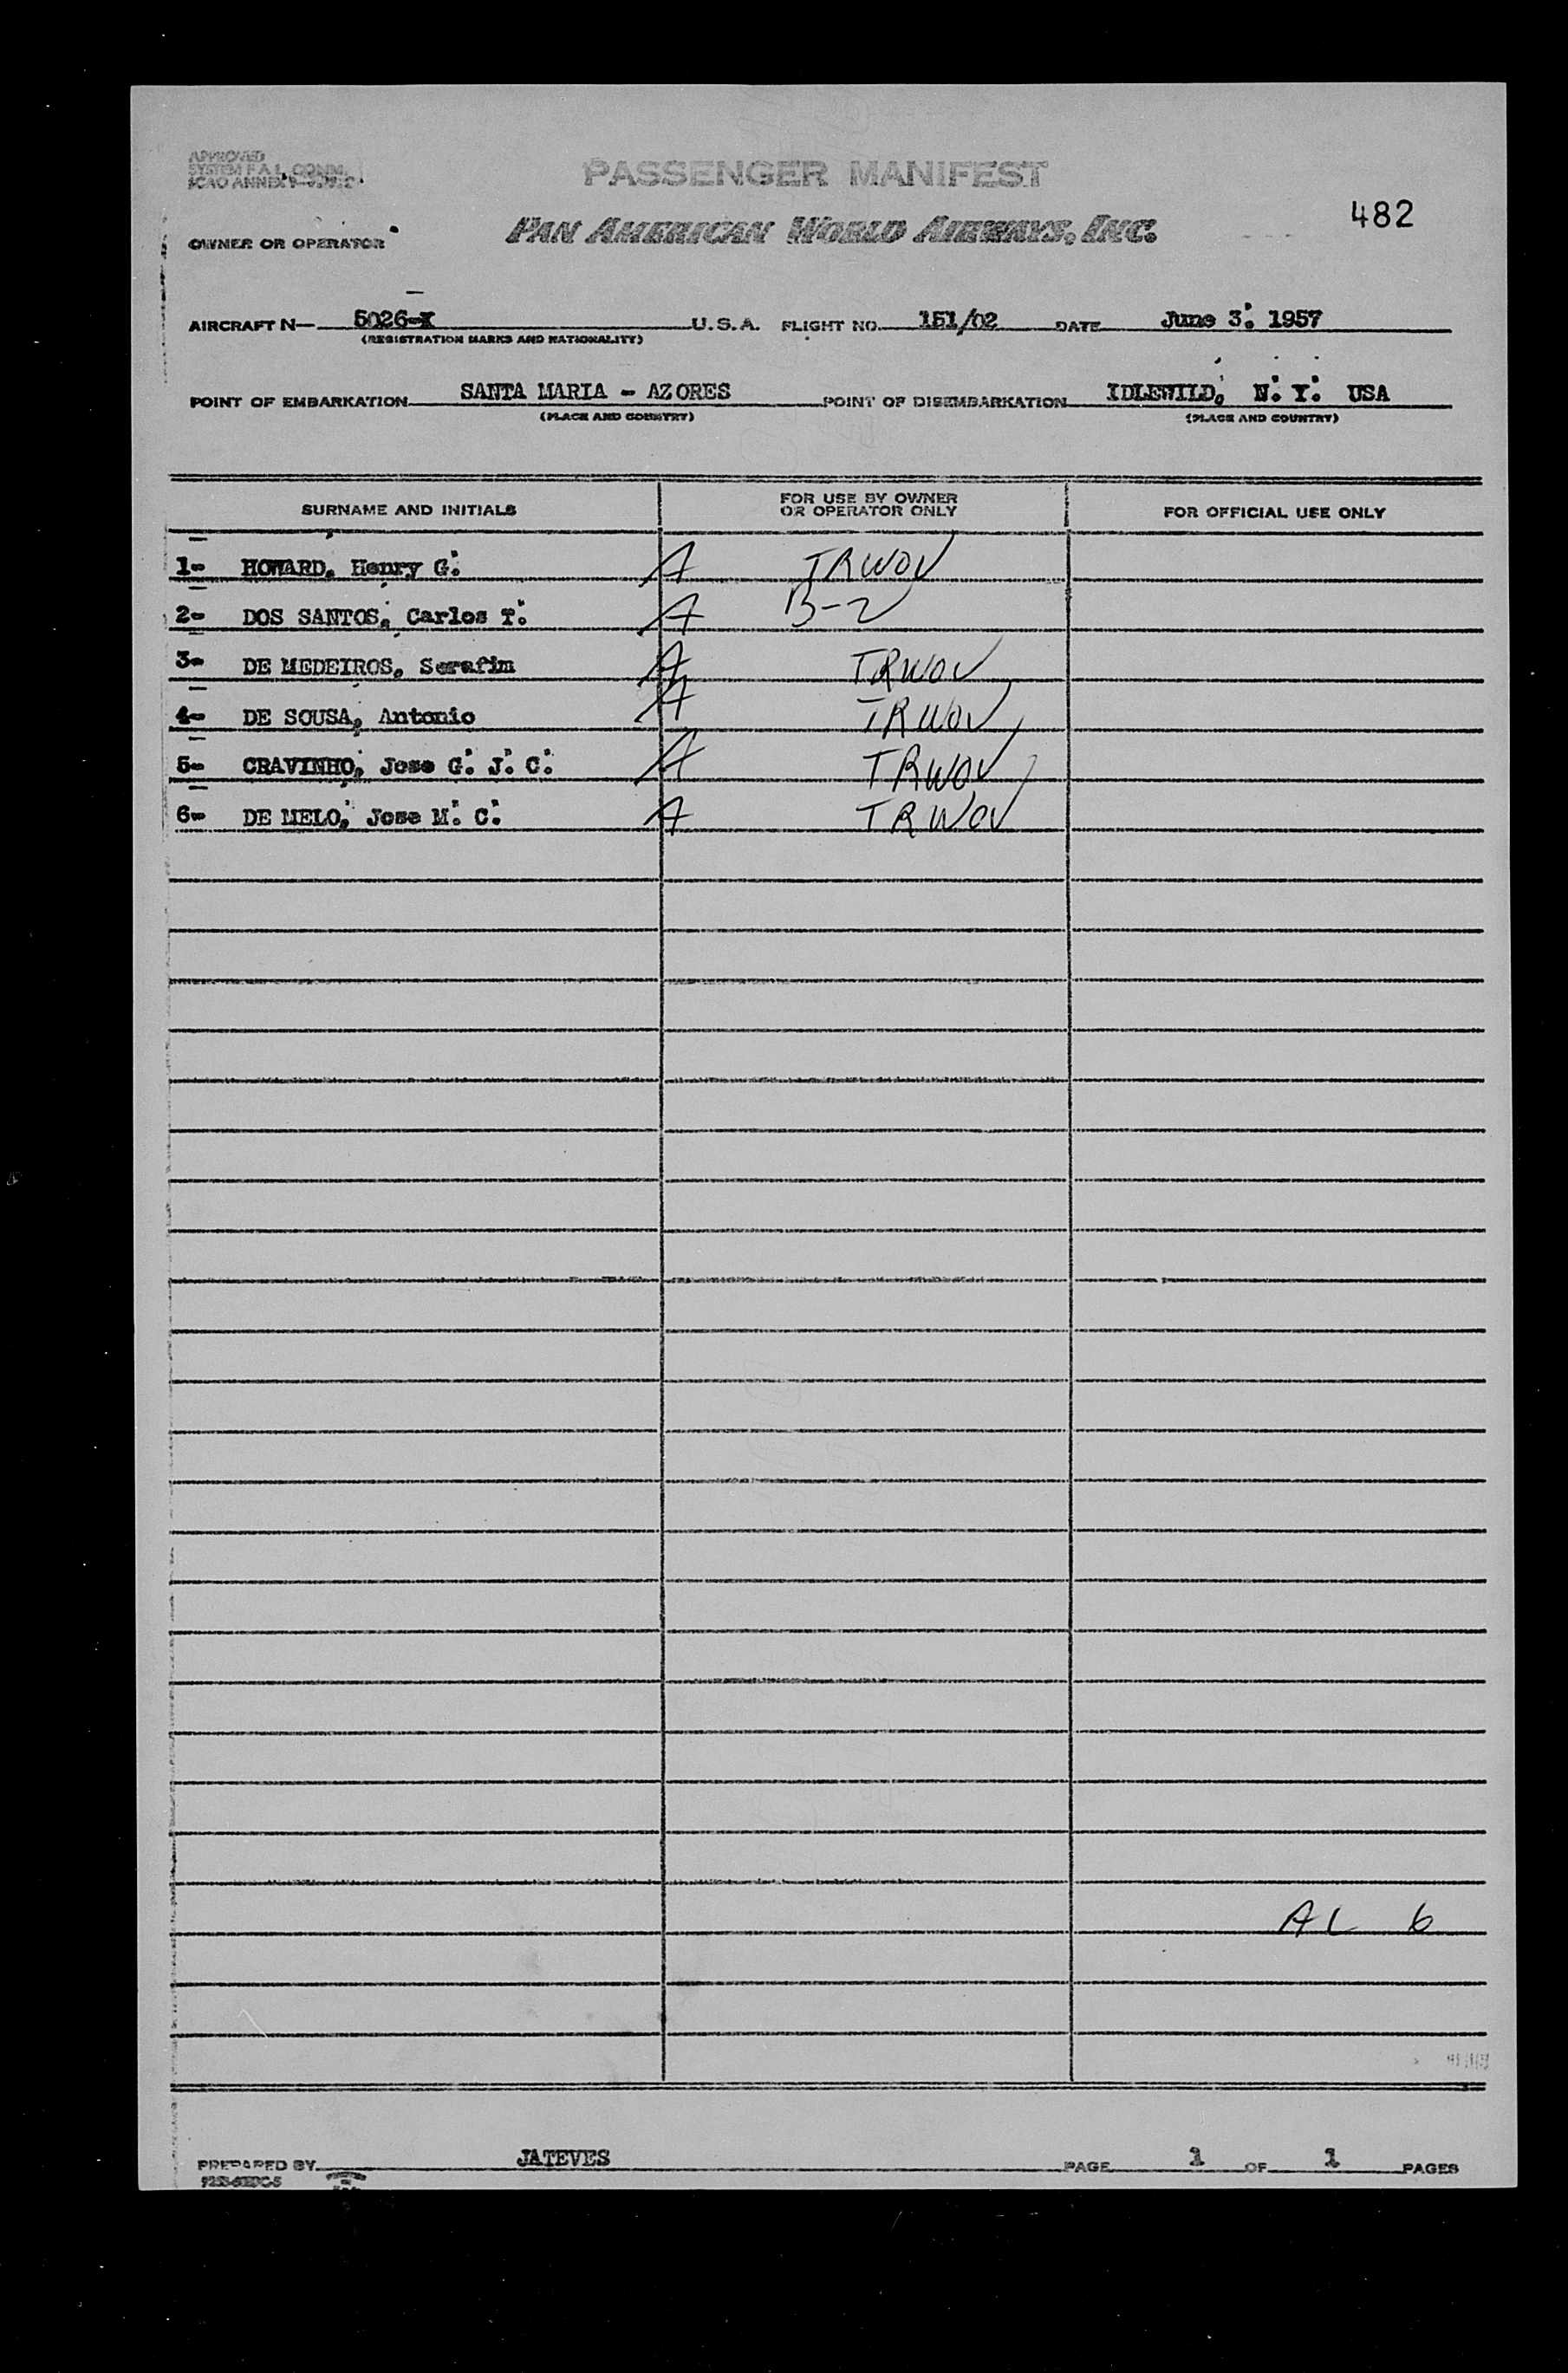 APPROVED
SYSTEM F.A.L. COMM.
ICAO ANNEX 9
PASSENGER MANIFEST
482
OWNER OR OPERATOR
PAN AMERICAN WORLD AIRWAYS, INC.
AIRCRAFT N— 5026-K U.S.A. FLIGHT NO. 151/02 DATE June 3. 1957
(REGISTRATION MARKS AND NATIONALITY)
POINT OF EMBARKATION SANTA MARIA - AZORES POINT OF DISEMBARKATION IDLEWILD, N. Y. USA
(PLACE AND COUNTRY) (PLACE AND COUNTRY)
SURNAME AND INITIALS FOR USE BY OWNER OR OPERATOR ONLY FOR OFFICIAL USE ONLY
1- HOWARD, Henry G. A TRWOV
2- DOS SANTOS, Carlos T. A B-2
3- DE MEDEIROS, Serafim A TRWOV
4- DE SOUSA, Antonio A TRWOV
5- CRAVINHO, Jose G. J. C. A TRWOV
6- DE MELO, Jose M. C. A TRWOV
AL 6
PREPARED BY JATEVES PAGE 1 OF 1 PAGES